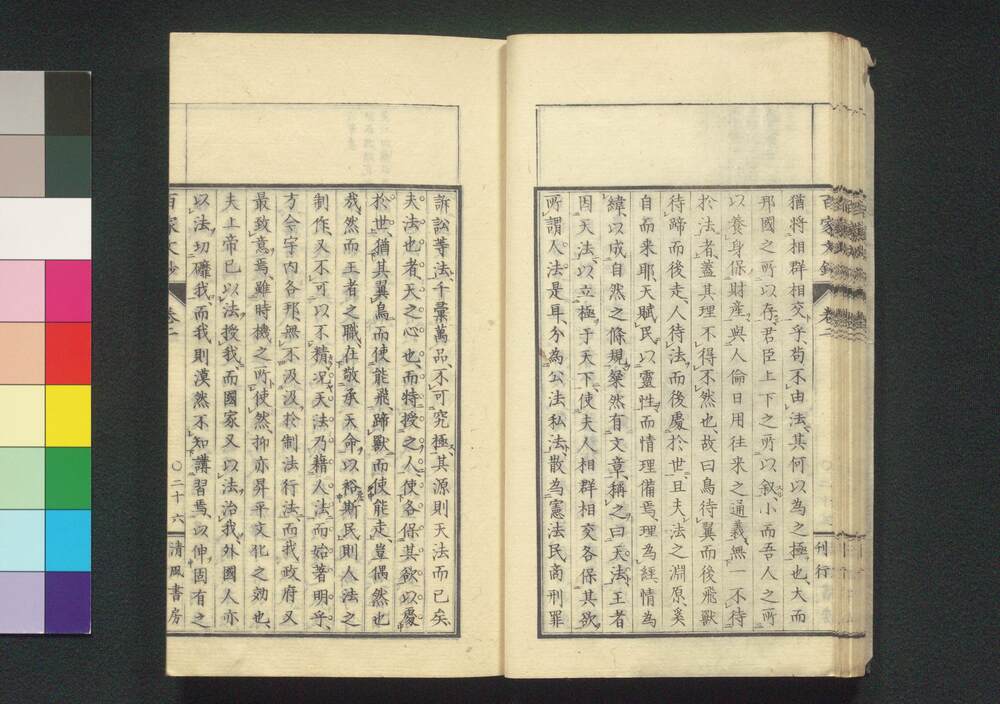 猶将相群相交乎苟不由法其何以為之極也大而
邦國之所以存君臣上下之所以叙小而吾人之所
以養身保財産與人倫日用往来之通義無一不待
於法者蓋其理不得不然也故曰鳥待翼而後飛獣
待蹄而後走人待法而後處於世且夫法之淵原奚
自而来耶天賦民以靈性而情理備焉理為經情為
緯以成自然之條規粲然有文章稱之曰天法王者
因天法以立極于天下使夫人相群相交各保其欲
所謂人法是耳分為公法私法散為憲法民商刑罪
訴訟等法千彙萬品不可究極其源則天法而已矣
夫法也者天之心也而特授之人使各保其欲以處
於世猶其翼鳥而使能飛蹄獣而使能走豈偶然也
哉然而王者之職在敬承天命以裕斯民則人法之
制作又不可以不精况天法乃藉人法而始著明乎
方今宇内各邦無不汲汲於制法行法而我政府又
最致意焉雖時機之所使然抑亦昇平文化之効也
夫上帝已以法授我而國家又以法治我外國人亦
以法切礪我而我則漠然不知講習焉以伸固有之
百家文鈔
卷二
○二十六
清風書房
刊行